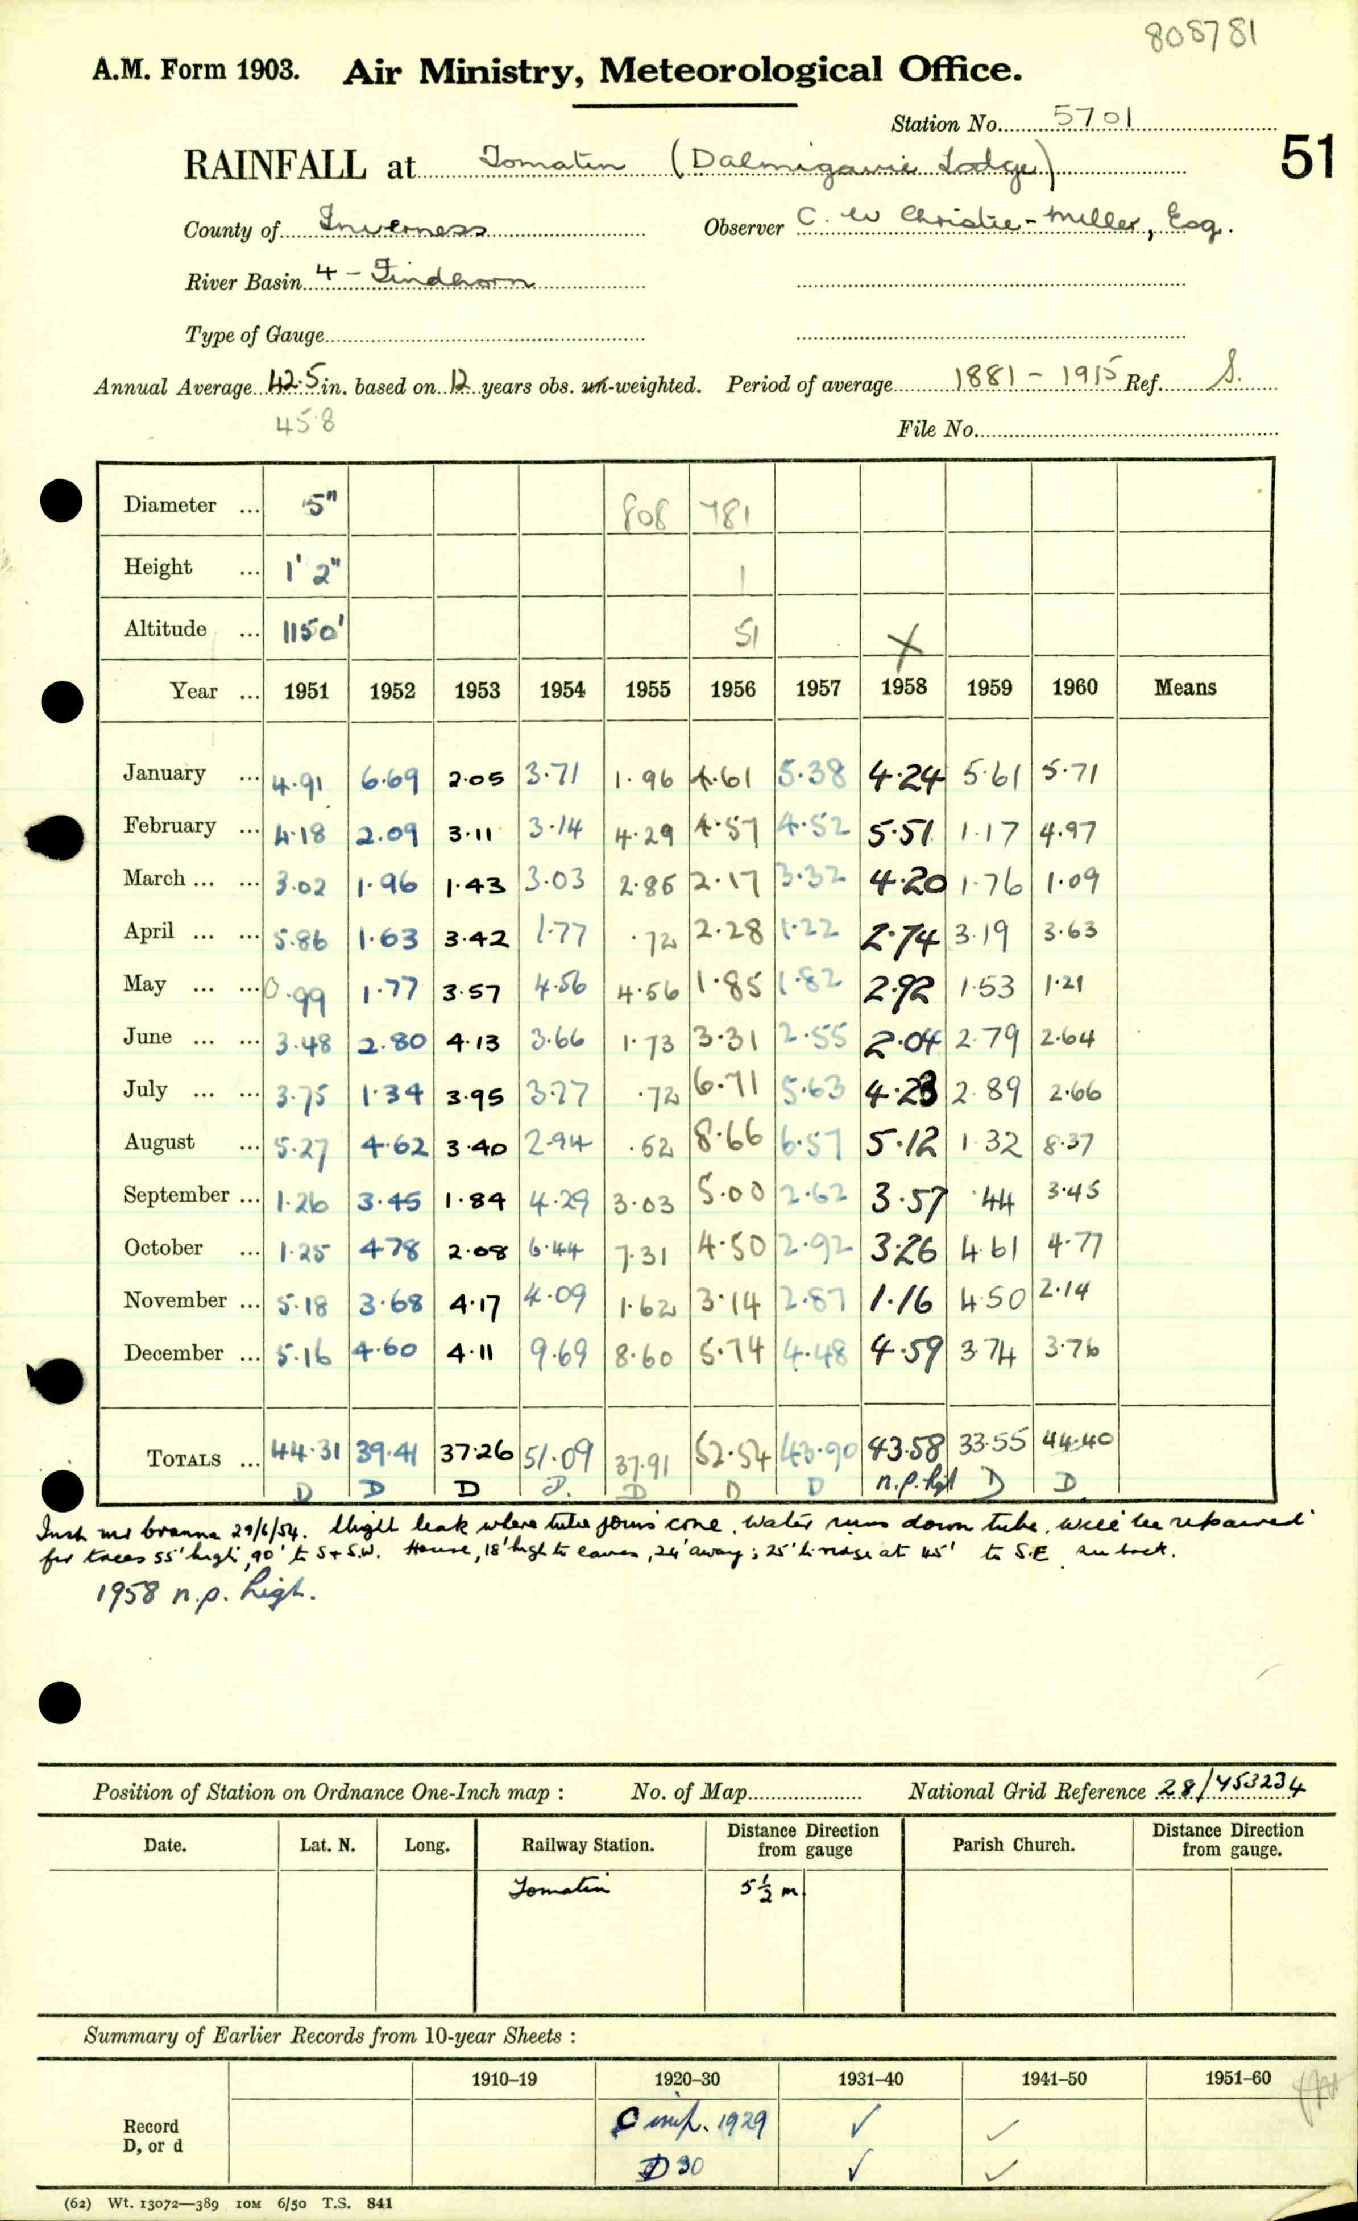 808781
A.M. Form 1903. Air Ministry, Meteorological Office.
Station No. 5701
51
RAINFALL at Tomatin (Dalmigavie Lodge)
County of Inverness Observer C. W Christie-Miller, Esq.
River Basin 4 - Findhorn
Type of Gauge
Annual Average 42.5 in. based on 12 years obs. un-weighted. Period of average 1881 - 1915 Ref. S.
45.8
File No.
Diameter ... 5" 808 781
Height ... 1' 2" 1
Altitude ... 1150' 51 X
Year ... 1951 1952 1953 1954 1955 1956 1957 1958 1959 1960 Means
January ... 4.91 6.69 2.05 3.71 1.96 4.61 5.38 4.24 5.61 5.71
February ... 4.18 2.09 3.11 3.14 4.29 4.57 4.52 5.51 1.17 4.97
March ... ... 3.02 1.96 1.43 3.03 2.85 2.17 3.32 4.20 1.76 1.09
April ... ... 5.86 1.63 3.42 1.77 .72 2.28 1.22 2.74 3.19 3.63
May ... ... 0.99 1.77 3.57 4.56 4.56 1.85 1.82 2.92 1.53 1.21
June ... ... 3.48 2.80 4.13 3.66 1.73 3.31 2.55 2.04 2.79 2.64
July ... ... 3.75 1.34 3.95 3.77 .72 6.71 5.63 4.23 2.89 2.66
August ... 5.27 4.62 3.40 2.94 .52 8.66 6.57 5.12 1.32 8.37
September ... 1.26 3.45 1.84 4.29 3.03 5.00 2.62 3.57 .44 3.45
October ... 1.25 4.78 2.08 6.44 7.31 4.50 2.92 3.26 4.61 4.77
November ... 5.18 3.68 4.17 4.09 1.62 3.14 2.87 1.16 4.50 2.14
December ... 5.16 4.60 4.11 9.69 8.60 5.74 4.48 4.59 3.74 3.76
TOTALS ... 44.31 39.41 37.26 51.09 37.91 52.54 43.90 43.58 33.55 44.40
D D D D. D D D n.p. hgt D D
29/6/54. Slight leak where tube joins cone. Water runs down tube. Will be repaired
fir trees 55' high, 90' to S + S.W. House, 18' high to eaves, 24' away; 25' to ridge at 45' to S.E
1958 n.p. high.
Position of Station on Ordnance One-Inch map : No. of Map National Grid Reference 28/753234
Date. Lat. N. Long. Railway Station. Distance from Direction gauge Parish Church. Distance from Direction gauge.
Tomatin 5½ m
Summary of Earlier Records from 10-year Sheets :
1910–19 1920–30 1931–40 1941–50 1951–60
Record C inf. 1929 ✓ ✓
D, or d D 30 ✓ ✓
(62) Wt. 13072—389 10M 6/50 T.S. 841